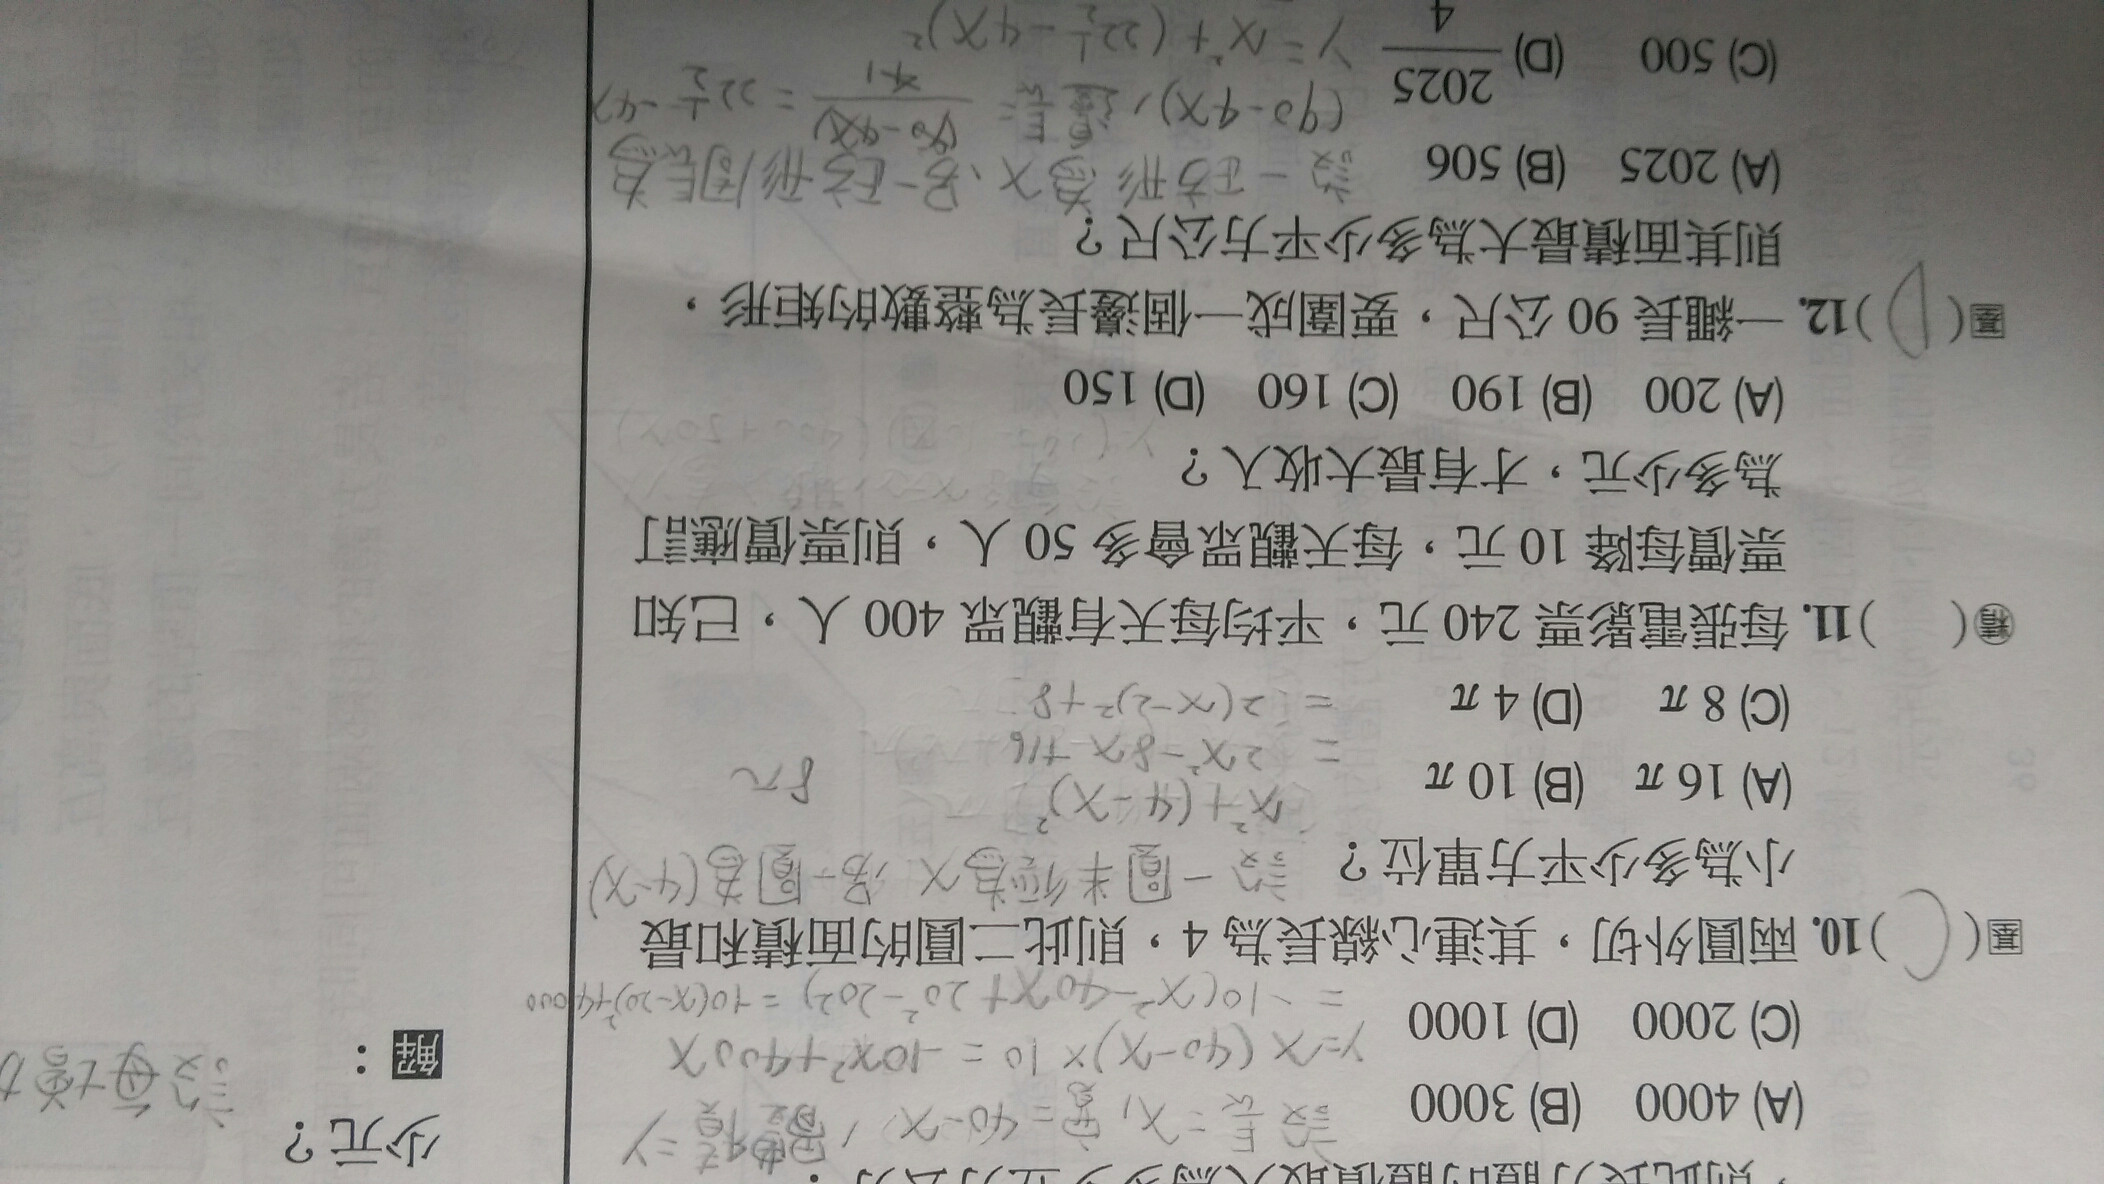 少元？
解：
設每增加
(A) 4000 (B) 3000
設長=x，寬=40-x，
(C) 2000 (D) 1000
y=x(40-x)×10=-10x²+400x
基( C )10. 兩圓外切，其連心線長為 4，則此二圓的面積和最
小為多少平方單位？
設一圓半徑為x 另一圓為(4-x)
(A) 16 π (B) 10 π
x²+(4-x)²
=2x²-8x+16
8π
(C) 8 π (D) 4 π
=2(x-2)²+8
精( )11. 每張電影票 240 元，平均每天有觀眾 400 人，已知
票價每降 10 元，每天觀眾會多 50 人，則票價應訂
為多少元，才有最大收入？
(A) 200 (B) 190 (C) 160 (D) 150
基( D )12. 一繩長 90 公尺，要圍成一個邊長為整數的矩形，
則其面積最大為多少平方公尺？
(A) 2025 (B) 506
設一正方形為x，另一正方形周長為
(C) 500 (D) 2025/4
(90-4x)，邊長=
y=x²+(22½-4x)²